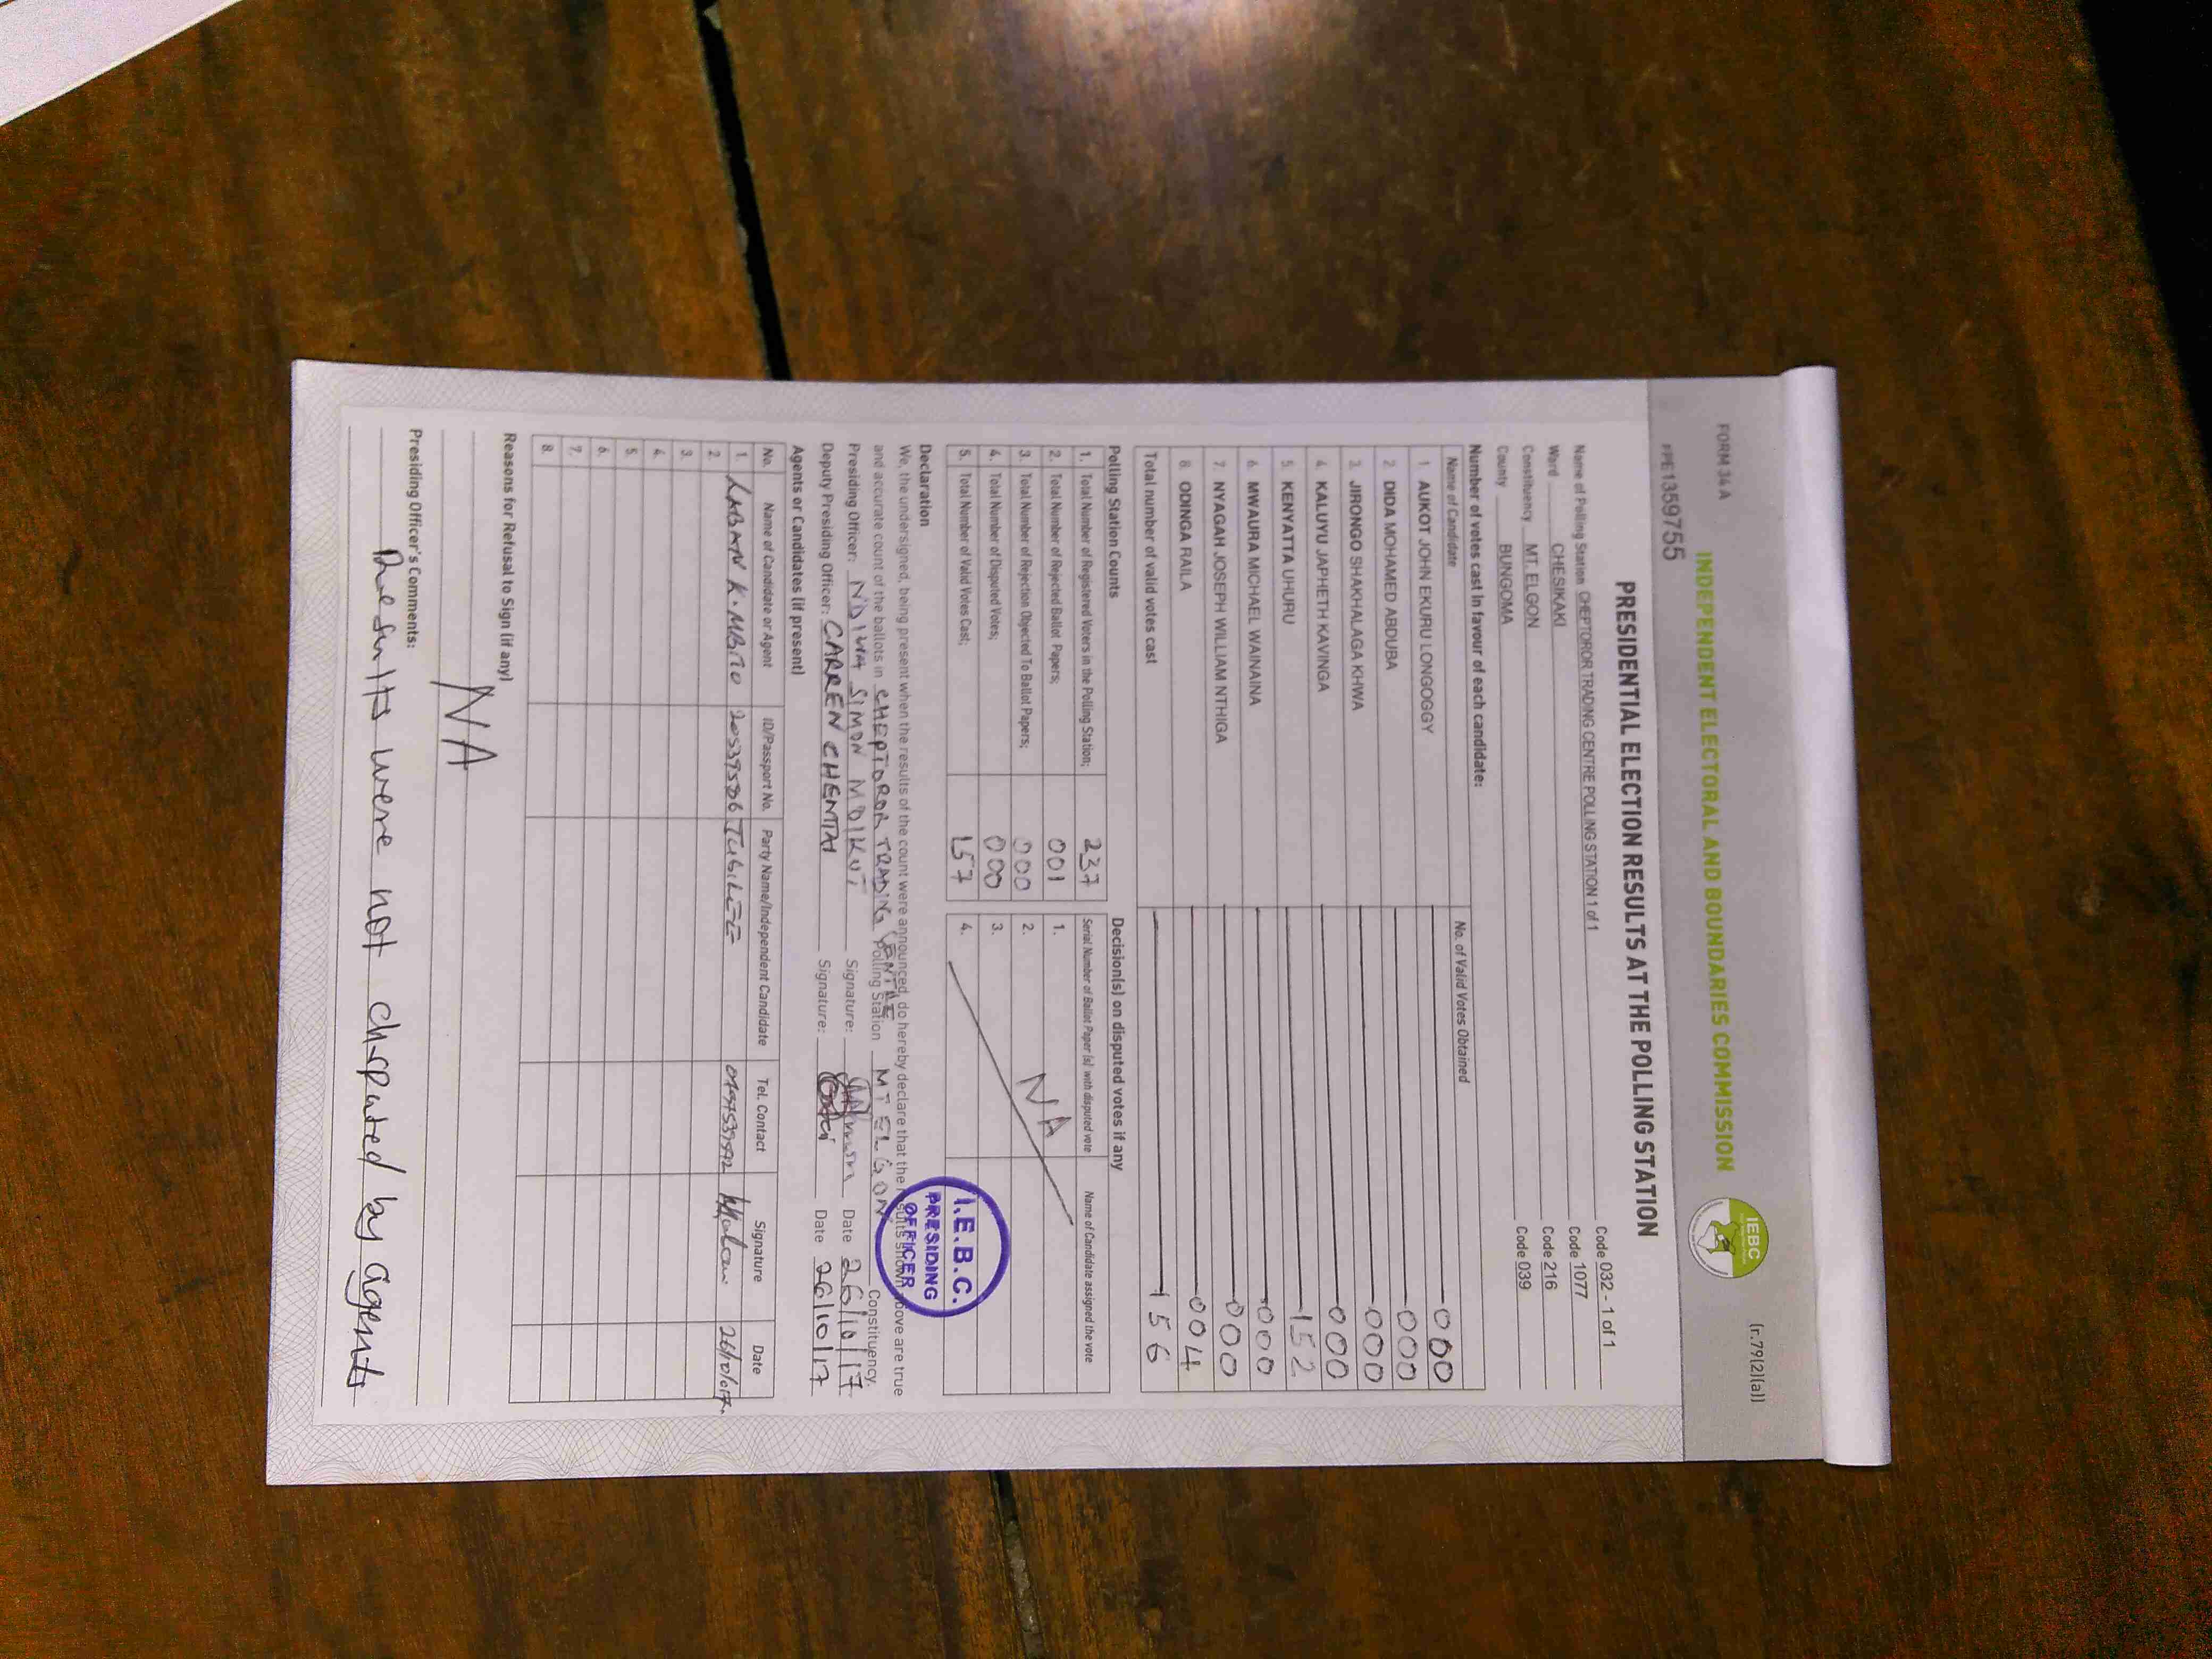 FORM 34 A
(r.79(2)(a))
INDEPENDENT ELECTORAL AND BOUNDARIES COMMISSION
IEBC
PPE1359755
PRESIDENTIAL ELECTION RESULTS AT THE POLLING STATION
Name of Polling Station CHEPTOROR TRADING CENTRE POLLING STATION 1 of 1 Code 032 - 1 of 1
Ward CHESIKAKI Code 1077
Constituency MT. ELGON Code 216
County BUNGOMA Code 039
Number of votes cast in favour of each candidate:
Name of Candidate No. of Valid Votes Obtained
1. AUKOT JOHN EKURU LONGOGGY 000
2. DIDA MOHAMED ABDUBA 000
3. JIRONGO SHAKHALAGA KHWA 000
4. KALUYU JAPHETH KAVINGA 000
5. KENYATTA UHURU 152
6. MWAURA MICHAEL WAINAINA 000
7. NYAGAH JOSEPH WILLIAM NTHIGA 000
8. ODINGA RAILA 004
Total number of valid votes cast 156
Polling Station Counts
1. Total Number of Registered Voters in the Polling Station; 237
2. Total Number of Rejected Ballot Papers; 001
3. Total Number of Rejection Objected To Ballot Papers; 000
4. Total Number of Disputed Votes; 000
5. Total Number of Valid Votes Cast; 157
Decision(s) on disputed votes if any
Serial Number of Ballot Paper (s) with disputed vote Name of Candidate assigned the vote
1.
2. NA
3.
4.
Declaration
We, the undersigned, being present when the results of the count were announced, do hereby declare that the results shown above are true
and accurate count of the ballots in CHEPTOROR TRADING CENTRE Polling Station MT ELGON Constituency.
Presiding Officer: NDIWA SIMON MOIKUT Signature: Date 26/10/17
Deputy Presiding Officer: CARREN CHEMTAI Signature: Date 26/10/17
I.E.B.C.
PRESIDING
OFFICER
Agents or Candidates (if present)
No. Name of Candidate or Agent ID/Passport No. Party Name/Independent Candidate Tel. Contact Signature Date
1. LABAN K. JUBILEE 26/10/017.
2.
3.
4.
5.
6.
7.
8.
Reasons for Refusal to Sign (if any)
NA
Presiding Officer's Comments:
The results were not disputed by agents